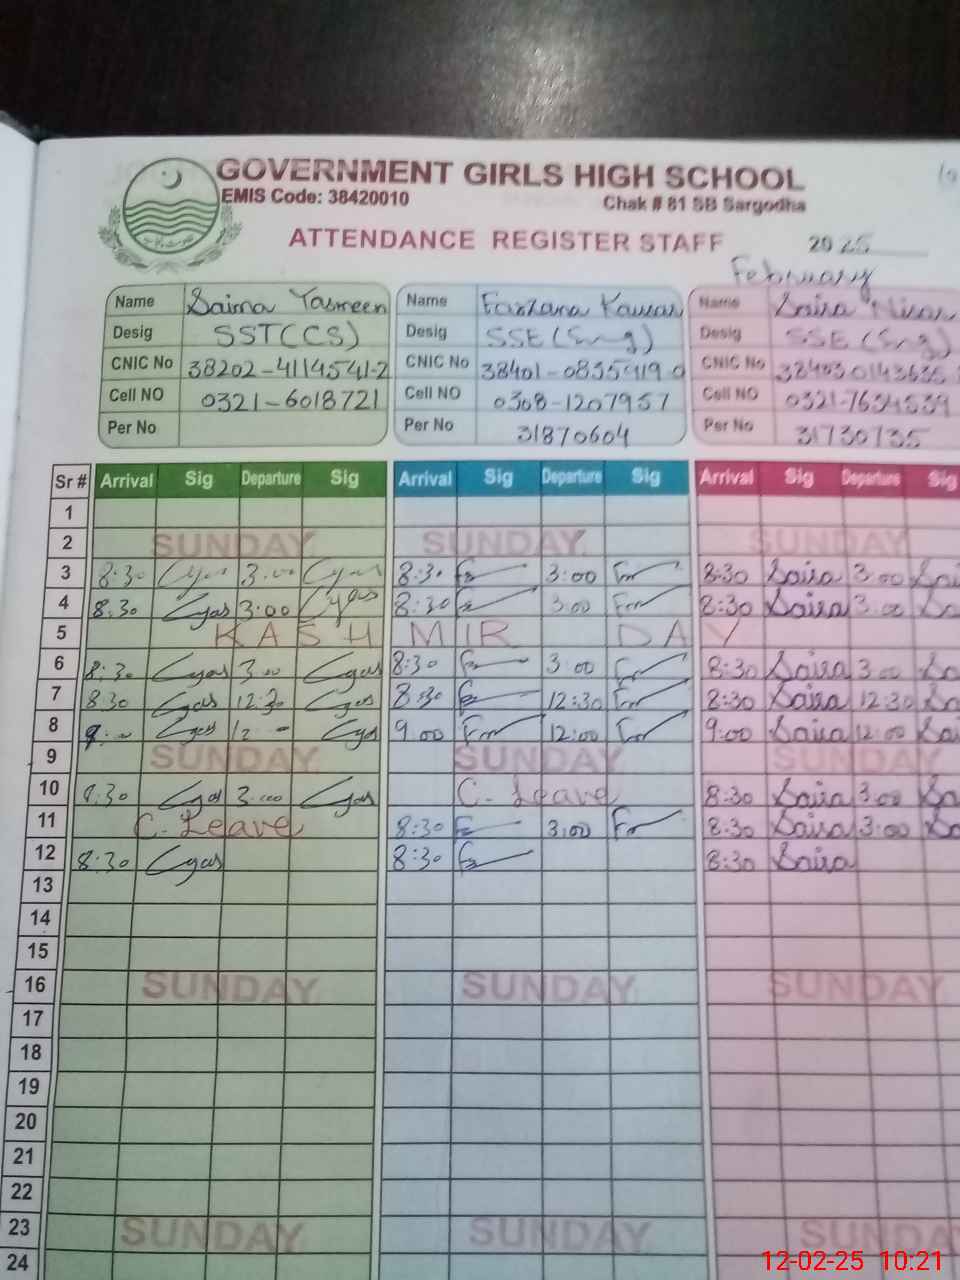 GOVERNMENT GIRLS HIGH SCHOOL
EMIS Code: 38420010 Chak # 81 SB Sargodha
ATTENDANCE REGISTER STAFF 2025
February
Name Saima Yasmeen Name Farzana Kausar Name Saira Nisar
Desig SST(CS) Desig SSE (Eng) Desig SSE (Eng)
CNIC No 38202-4114541-2 CNIC No 38401-0835919-0 CNIC No
Cell NO 0321-6018721 Cell NO 0308-1207957 Cell NO 0321-7654539
Per No Per No 31870604 Per No 31730735
Sr # Arrival Sig Departure Sig Arrival Sig Departure Sig Arrival Sig Departure Sig
1
2 SUNDAY SUNDAY SUNDAY
3 8:30 3:00 8:30 3:00 8:30 Saira 3:00 Sai
4 8:30 3:00 8:30 3:00 8:30 Saira 3:00 Sa
5 KASHMIR DAY
6 8:30 3:00 8:30 3:00 8:30 Saira 3:00 Sa
7 8:30 12:30 8:30 12:30 8:30 Saira 12:30 Sa
8 9:00 12:00 9:00 12:00 9:00 Saira 12:00 Sai
9 SUNDAY SUNDAY SUNDAY
10 8:30 3:00 C. Leave 8:30 Saira 3:00 Sa
11 C. Leave 8:30 3:00 8:30 Saira 3:00 Sa
12 8:30 8:30 8:30 Saira
13
14
15
16 SUNDAY SUNDAY SUNDAY
17
18
19
20
21
22
23 SUNDAY SUNDAY SUNDAY
24
12-02-25 10:21